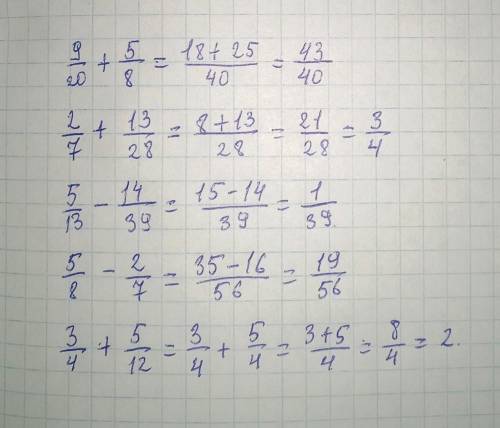 9/20 + 5/8 = (18+25)/40 = 43/40
2/7 + 13/28 = (8+13)/28 = 21/28 = 3/4
5/13 - 14/39 = (15-14)/39 = 1/39.
5/8 - 2/7 = (35-16)/56 = 19/56
3/4 + 5/12 = 3/4 + 5/4 = (3+5)/4 = 8/4 = 2.